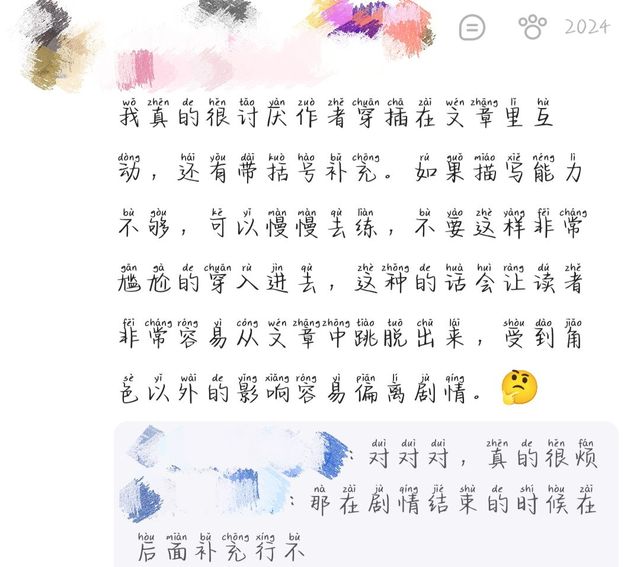 2024
wǒ zhēn de hěn tǎo yàn zuò zhě chuān chā zài wén zhāng lǐ hù
我真的很讨厌作者穿插在文章里互
dòng hái yǒu dài kuò hào bǔ chōng rú guǒ miáo xiě néng lì
动，还有带括号补充。如果描写能力
bù gòu kě yǐ màn màn qù liàn bù yào zhè yàng fēi cháng
不够，可以慢慢去练，不要这样非常
gān gà de chuān rù jìn qù zhè zhǒng de huà huì ràng dú zhě
尴尬的穿入进去，这种的话会让读者
fēi cháng róng yì cóng wén zhāng zhōng tiào tuō chū lái shòu dào jiǎo
非常容易从文章中跳脱出来，受到角
sè yǐ wài de yǐng xiǎng róng yì piān lí jù qíng
色以外的影响容易偏离剧情。🤔
duì duì duì zhēn de hěn fán
：对对对，真的很烦
nà zài jù qíng jié shù de shí hòu zài
：那在剧情结束的时候在
hòu miàn bǔ chōng xíng bù
后面补充行不